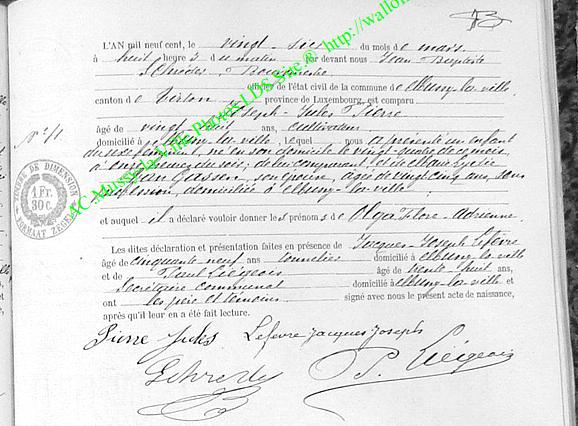 L'AN mil neuf cent, le vingt-six du mois de mars
à huit heures du matin par devant nous Jean Baptiste
Schröder, Bourgmestre
officier de l'état civil de la commune de Mussy-la-ville
canton de Virton province de Luxembourg, est comparu
Joseph-Jules Pierre
N° 11
âgé de vingt huit ans, cultivateur
domicilié à Mussy-la-ville, lequel nous a présenté un enfant
du sexe féminin, né en son domicile le vingt-quatre de ce mois
à onze heures du soir; de lui comparant et de
Gasson, son épouse, âgée de vingt cinq ans, sans
profession, domiciliée à Mussy-la-ville
et auquel il a déclaré vouloir donner les prénoms de Olga Flore-Adrienne
Les dites déclaration et présentation faites en présence de Jacques-Joseph Lefèvre
âgé de cinquante neuf ans tonnelier domicilié à Mussy-la-ville
et de Paul Liégeois âgé de trente huit ans,
secrétaire communal domicilié à Mussy-la-ville et
ont les père et témoins signé avec nous le présent acte de naissance,
après qu'il leur en a été fait lecture.
Pierre Jules Lefevre Jacques Joseph
P. Liégeois
TIMBRE DE DIMENSION
1 Fr.
30 c.
FORMAAT ZEGEL
AC Mussy-la-Ville Photos LDS Site © http://wallon